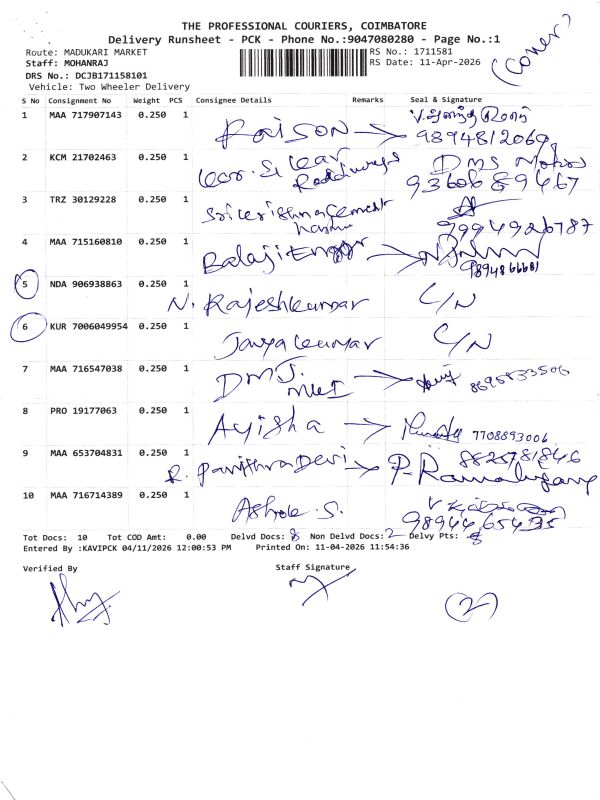 THE PROFESSIONAL COURIERS, COIMBATORE
Delivery Runsheet - PCK - Phone No.:9047080280 - Page No.:1
(Cover)
Route: MADUKARI MARKET RS No.: 1711581
Staff: MOHANRAJ RS Date: 11-Apr-2026
DRS No.: DCJB171158101
Vehicle: Two Wheeler Delivery
S No Consignment No Weight PCS Consignee Details Remarks Seal & Signature
1 MAA 717907143 0.250 1 Raison 9894812069
2 KCM 21702463 0.250 1 DMS 9360689467
3 TRZ 30129228 0.250 1 9994926787
4 MAA 715160810 0.250 1 Balaji Engg 9894866681
5 NDA 906938863 0.250 1 N. Rajeshkumar C/N
6 KUR 7006049954 0.250 1 Jayakumar C/N
7 MAA 716547038 0.250 1 DMJ. 8695833506
8 PRO 19177063 0.250 1 Ayisha 7708893006
9 MAA 653704831 0.250 1 R. Pavithra Devi 8825781846
10 MAA 716714389 0.250 1 Ashok .S. 9894465435
Tot Docs: 10 Tot COD Amt: 0.00 Delvd Docs: 8 Non Delvd Docs: 2 Delvy Pts: 8
Entered By :KAVIPCK 04/11/2026 12:00:53 PM Printed On: 11-04-2026 11:54:36
Verified By Staff Signature
(2)